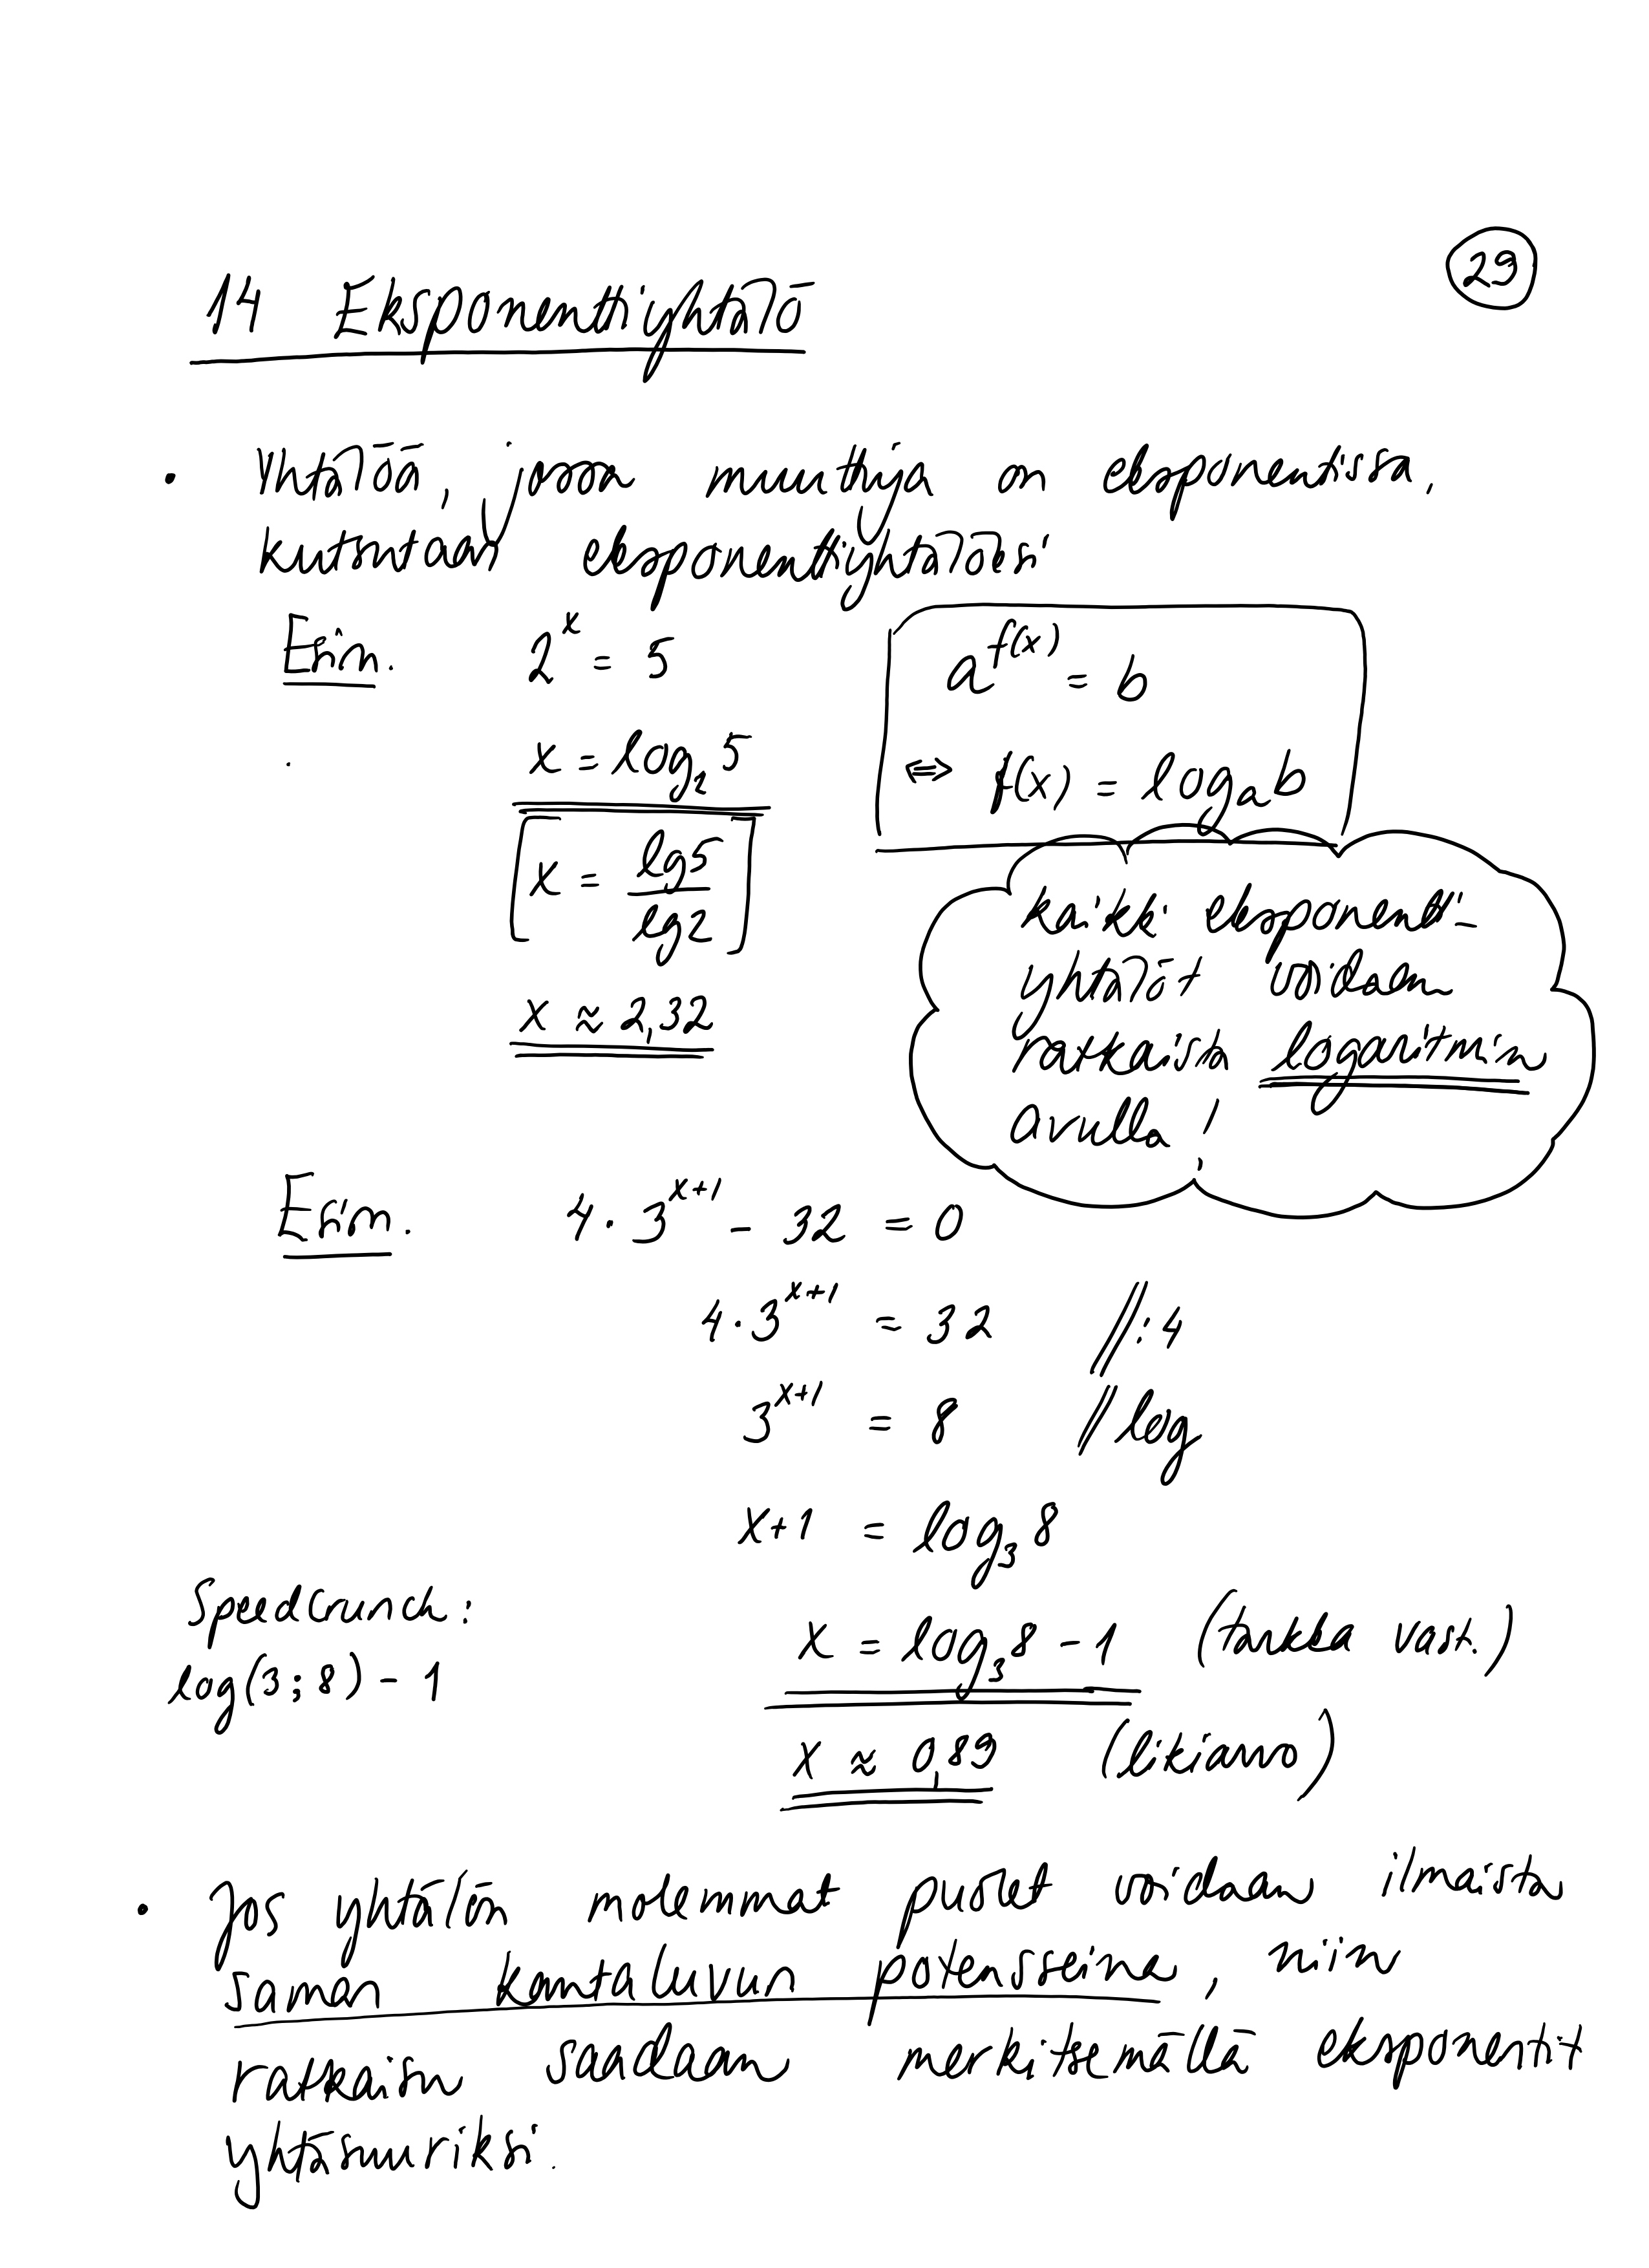 29
14 Eksponenttiyhtälö
• Yhtälöä, jossa muuttuja on eksponentissa,
kutsutaan eksponenttiyhtälöksi
Esim. 2^x = 5
a^f(x) = b
x = log₂ 5
⇔ f(x) = logₐ b
[x = lg5/lg2]
x ≈ 2,32
kaikki eksponentti-
yhtälöt voidaan
ratkaista logaritmin
avulla!
Esim. 4 · 3^(x+1) - 32 = 0
4 · 3^(x+1) = 32 // : 4
3^(x+1) = 8 // log
x+1 = log₃ 8
Speedcrunch:
log(3; 8) - 1
x = log₃ 8 - 1 (tarkka vast.)
x ≈ 0,89 (likiarvo)
• Jos yhtälön molemmat puolet voidaan ilmaista
saman kantaluvun potensseina, niin
ratkaisu saadaan merkitsemällä eksponentit
yhtäsuuriksi.